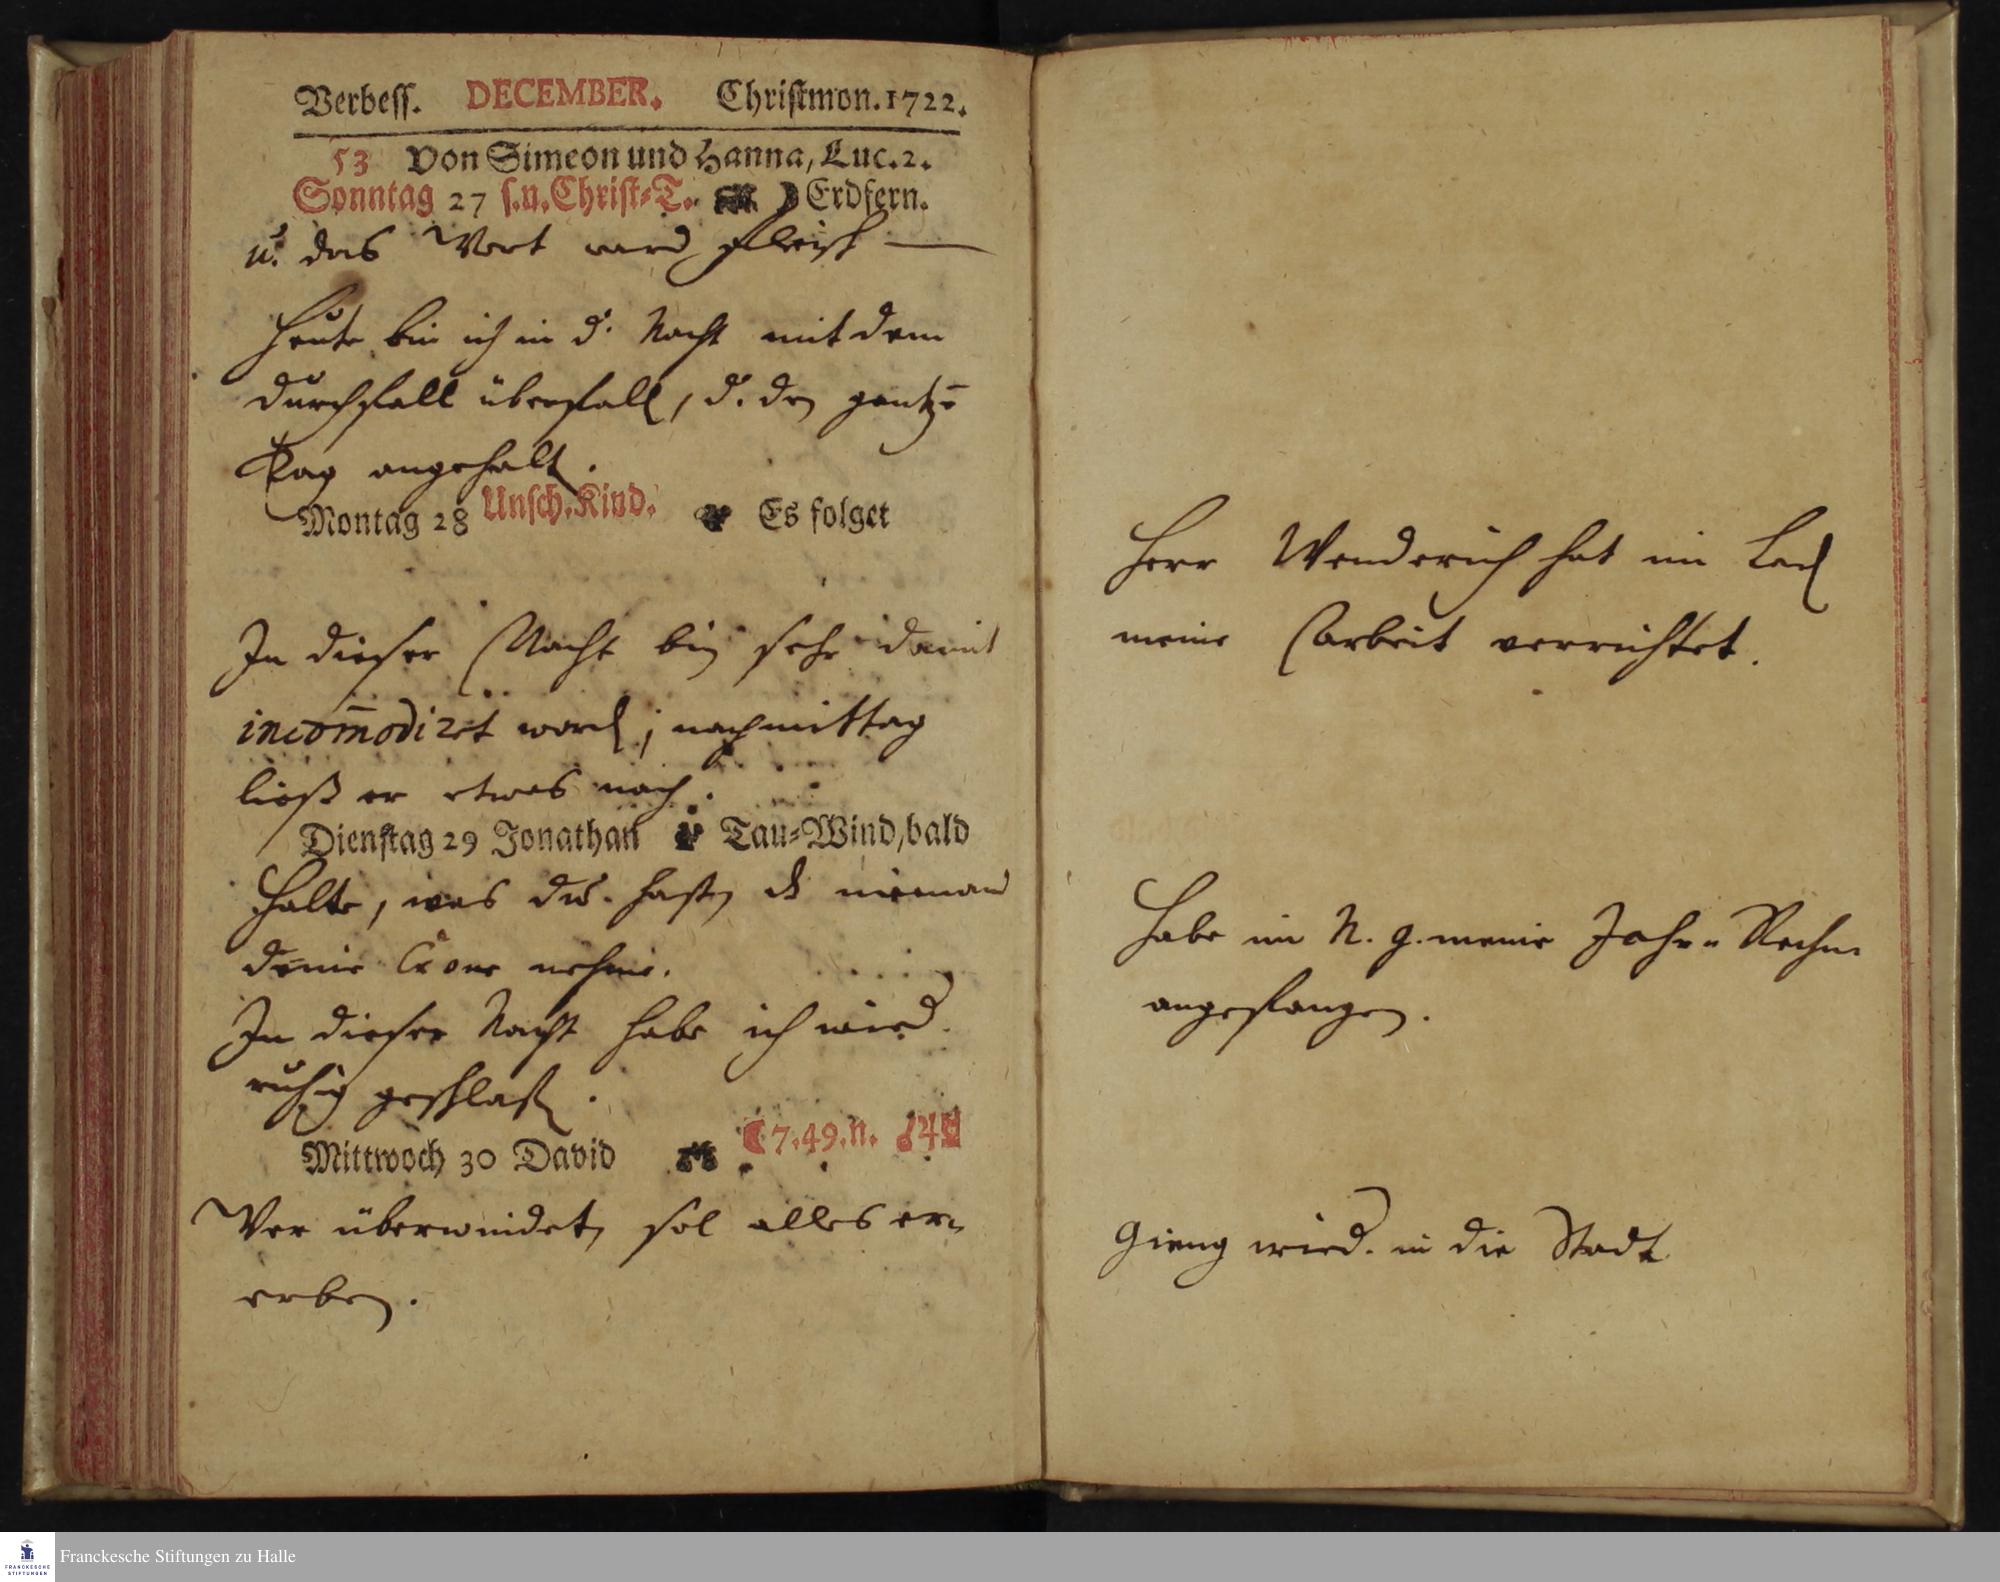 Verbess. DECEMBER. Christmon. 1722.
53 Von Simeon und Hanna, Luc. 2.
Sonntag 27 s. n. Christ-T. Erdfern.
u. das Wort ward Fleisch —
Heute bin ich in d. Nacht mit dem
durchfall überfall, d. den gantzē
Tag angehalt.
Montag 28 Unsch. Kind. Es folget
In dieser Nacht bin sehr damit
incom̄odiret word; nachmittag
ließ er etwas nach.
Dienstag 29 Jonathan Tau-Wind, bald
Halte, was du hast, niemand
deine Crone nehme.
In dieser Nacht habe ich wied.
ruhig geschlaff.
Mittwoch 30 David ☾ 7. 49. N.
Wer überwindet, sol alles er-
erben.
Herr Wenderich hat im
meine arbeit verrichtet.
Habe im N. g. meine Jahr- Rechn.
angefangen.
Gieng wied. in die Stadt
Franckesche Stiftungen zu Halle
FRANCKESCHE
STIFTUNGEN